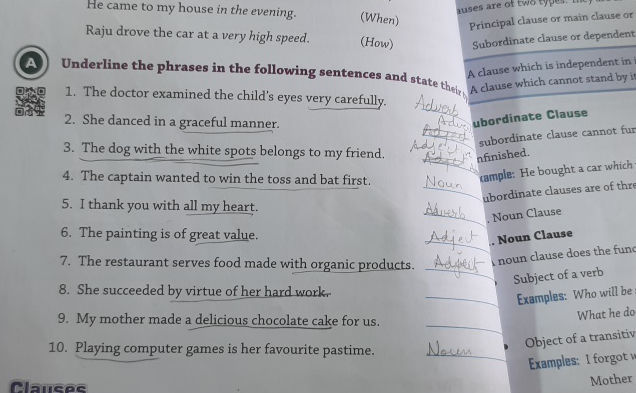 He came to my house in the evening. (When)
Raju drove the car at a very high speed. (How)
A Underline the phrases in the following sentences and state their
1. The doctor examined the child's eyes very carefully. Adverb
2. She danced in a graceful manner.
3. The dog with the white spots belongs to my friend.
4. The captain wanted to win the toss and bat first. Noun
5. I thank you with all my heart. Adverb
6. The painting is of great value. Adject
7. The restaurant serves food made with organic products.
8. She succeeded by virtue of her hard work.
9. My mother made a delicious chocolate cake for us.
10. Playing computer games is her favourite pastime. Noun
Clauses
Principal clause or main clause or
Subordinate clause or dependent
A clause which is independent in
A clause which cannot stand by it
ubordinate Clause
subordinate clause cannot fun
nfinished.
xample: He bought a car which
ubordinate clauses are of thre
. Noun Clause
. Noun Clause
noun clause does the func
Subject of a verb
Examples: Who will be
What he do
Object of a transitiv
Examples: I forgot w
Mother